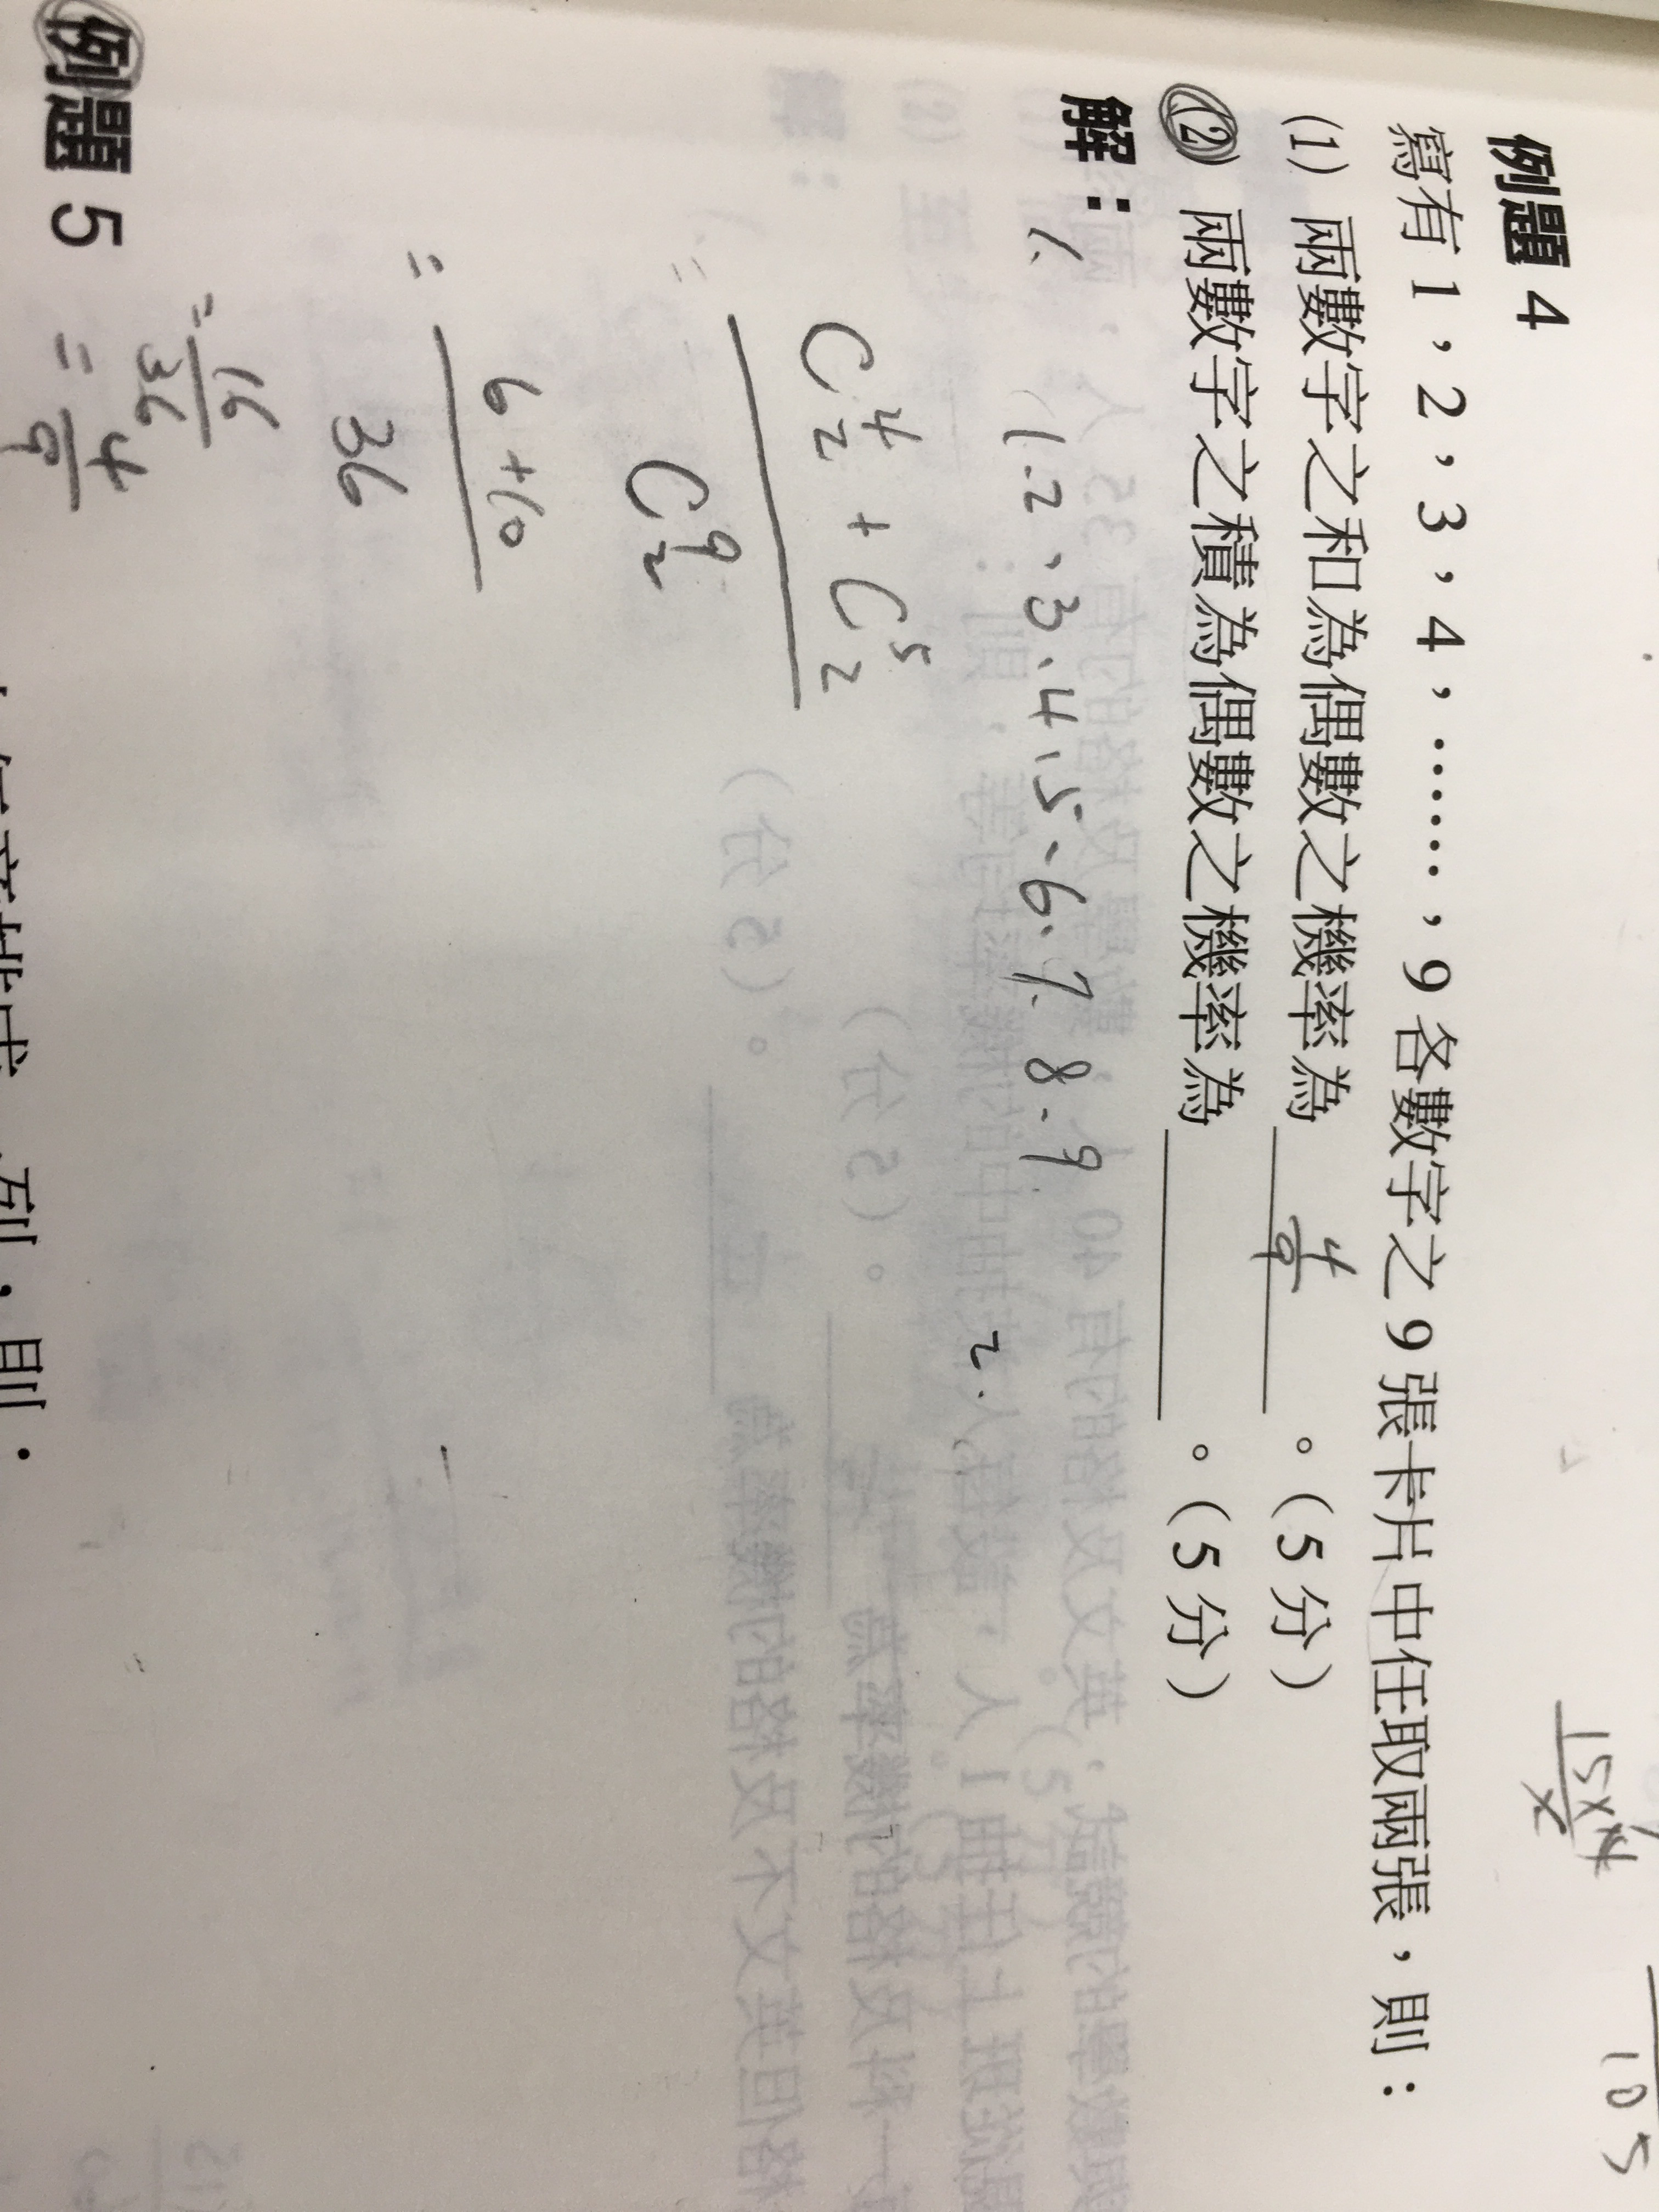 例題 4
寫有 1，2，3，4，……，9 各數字之 9 張卡片中任取兩張，則：
(1) 兩數字之和為偶數之機率為 4/9 。(5 分)
(2) 兩數字之積為偶數之機率為 ______ 。(5 分)
解：1.
1.2、3.4、5、6、7. 8.9
2.
C⁴₂ + C⁵₂
C⁹₂
= 6+10
36
= 16/36 = 4/9
例題 5
列，則：
15×14
2
105